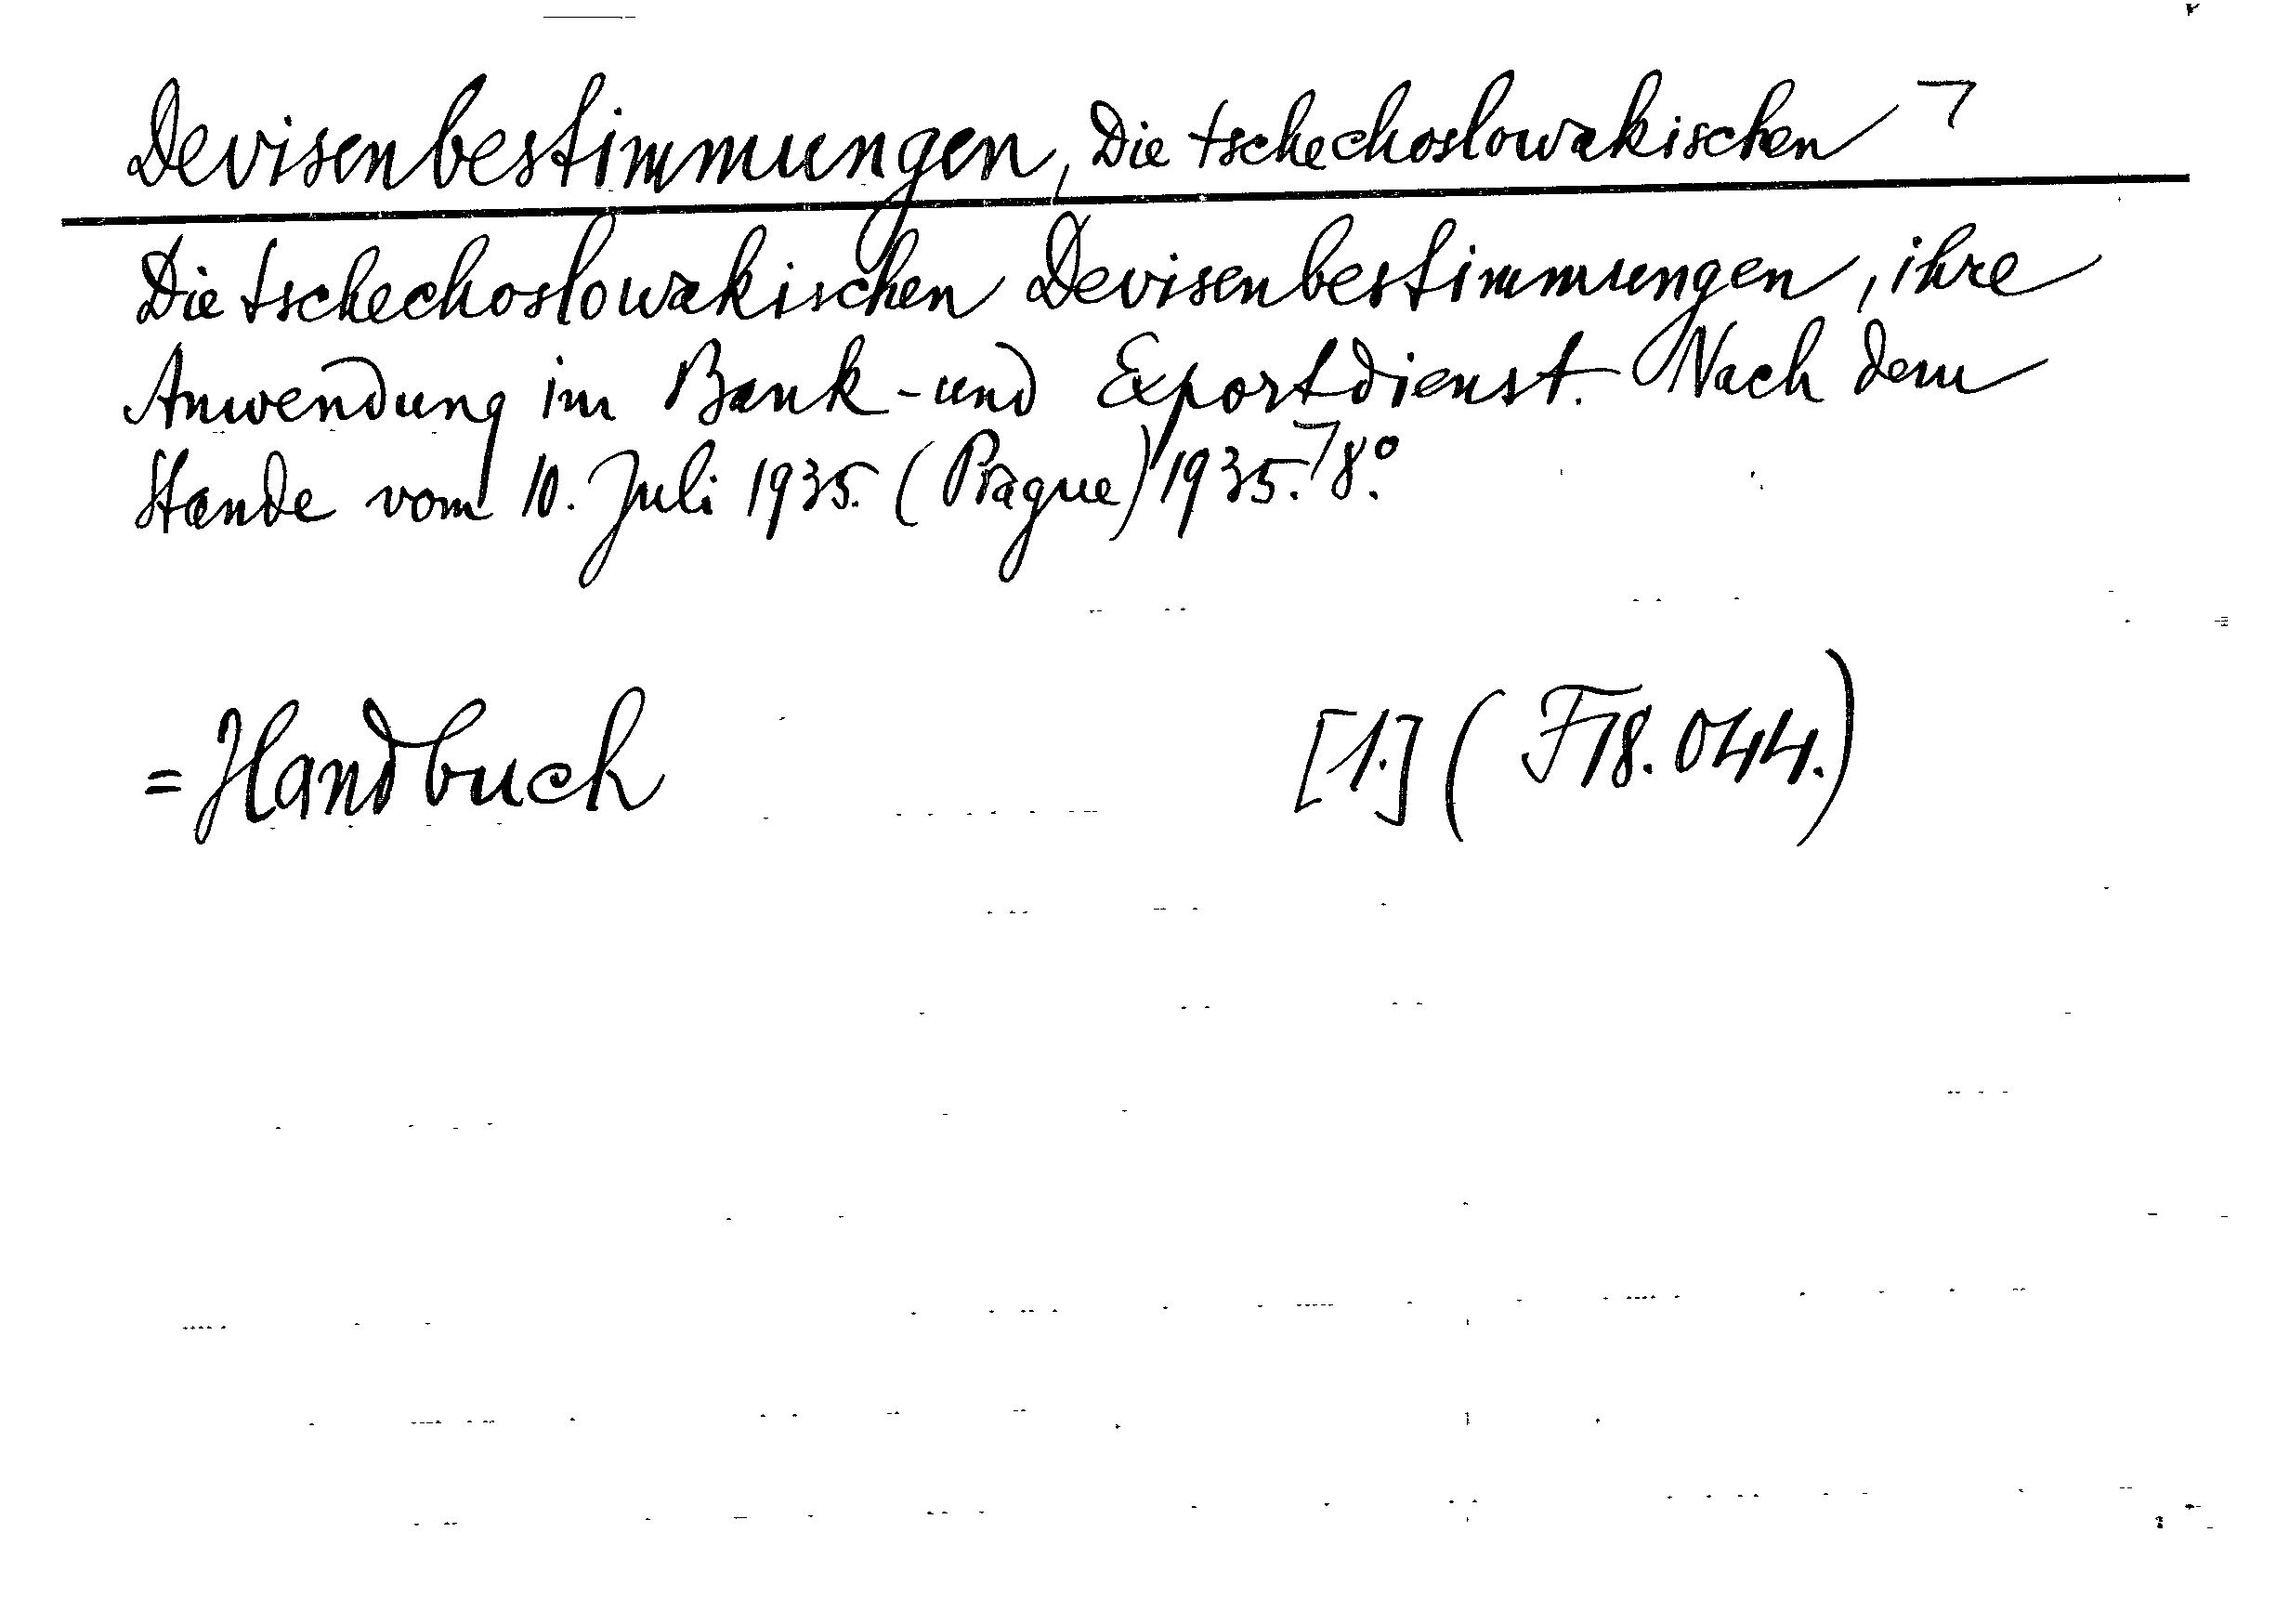 Devisenbestimmungen, Die tschechoslowakischen ¬
Die tschechoslowakischen Devisenbestimmungen, ihre
Anwendung im Bank- und Exportdienst. Nach dem
Stande vom 10. Juli 1935. (Prague) 1935.¬ 8°.
= Handbuch [1.] (F 18.044.)